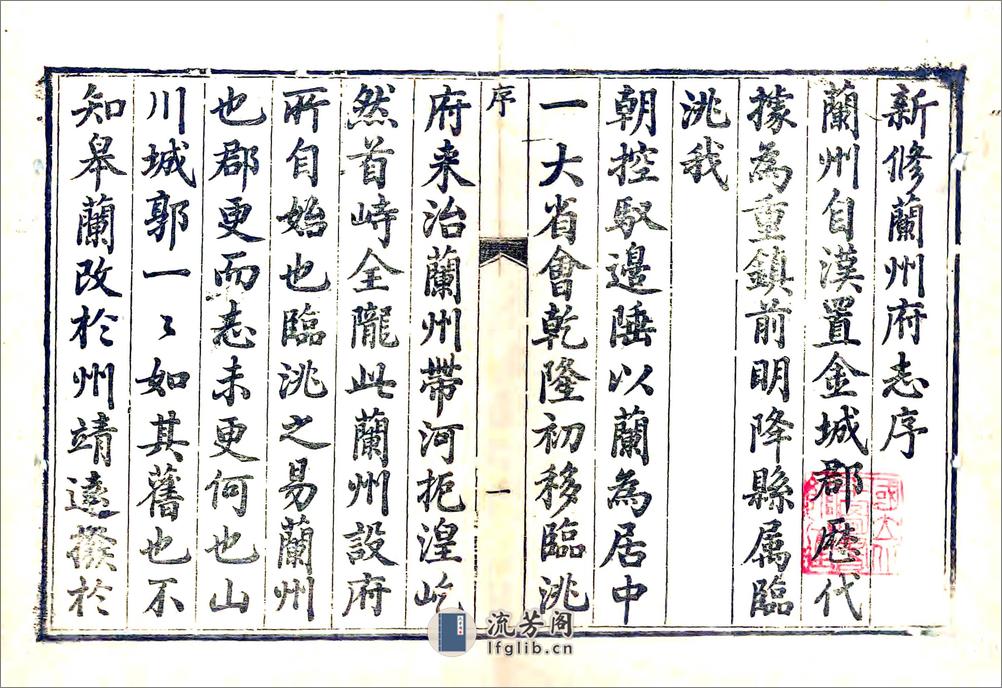 新修蘭州府志序
蘭州自漢置金城郡歷代
據為重鎮前明降縣属臨
洮我
朝控馭邉陲以蘭為居中
一大省會乾隆初移臨洮
序
一
府来治蘭州帶河扼湟屹
然首峙全隴此蘭州設府
所自始也臨洮之易蘭州
也郡更而志未更何也山
川城郭一〻如其舊也不
知皋蘭改於州靖遠撥於
流芳阁
lfglib.cn